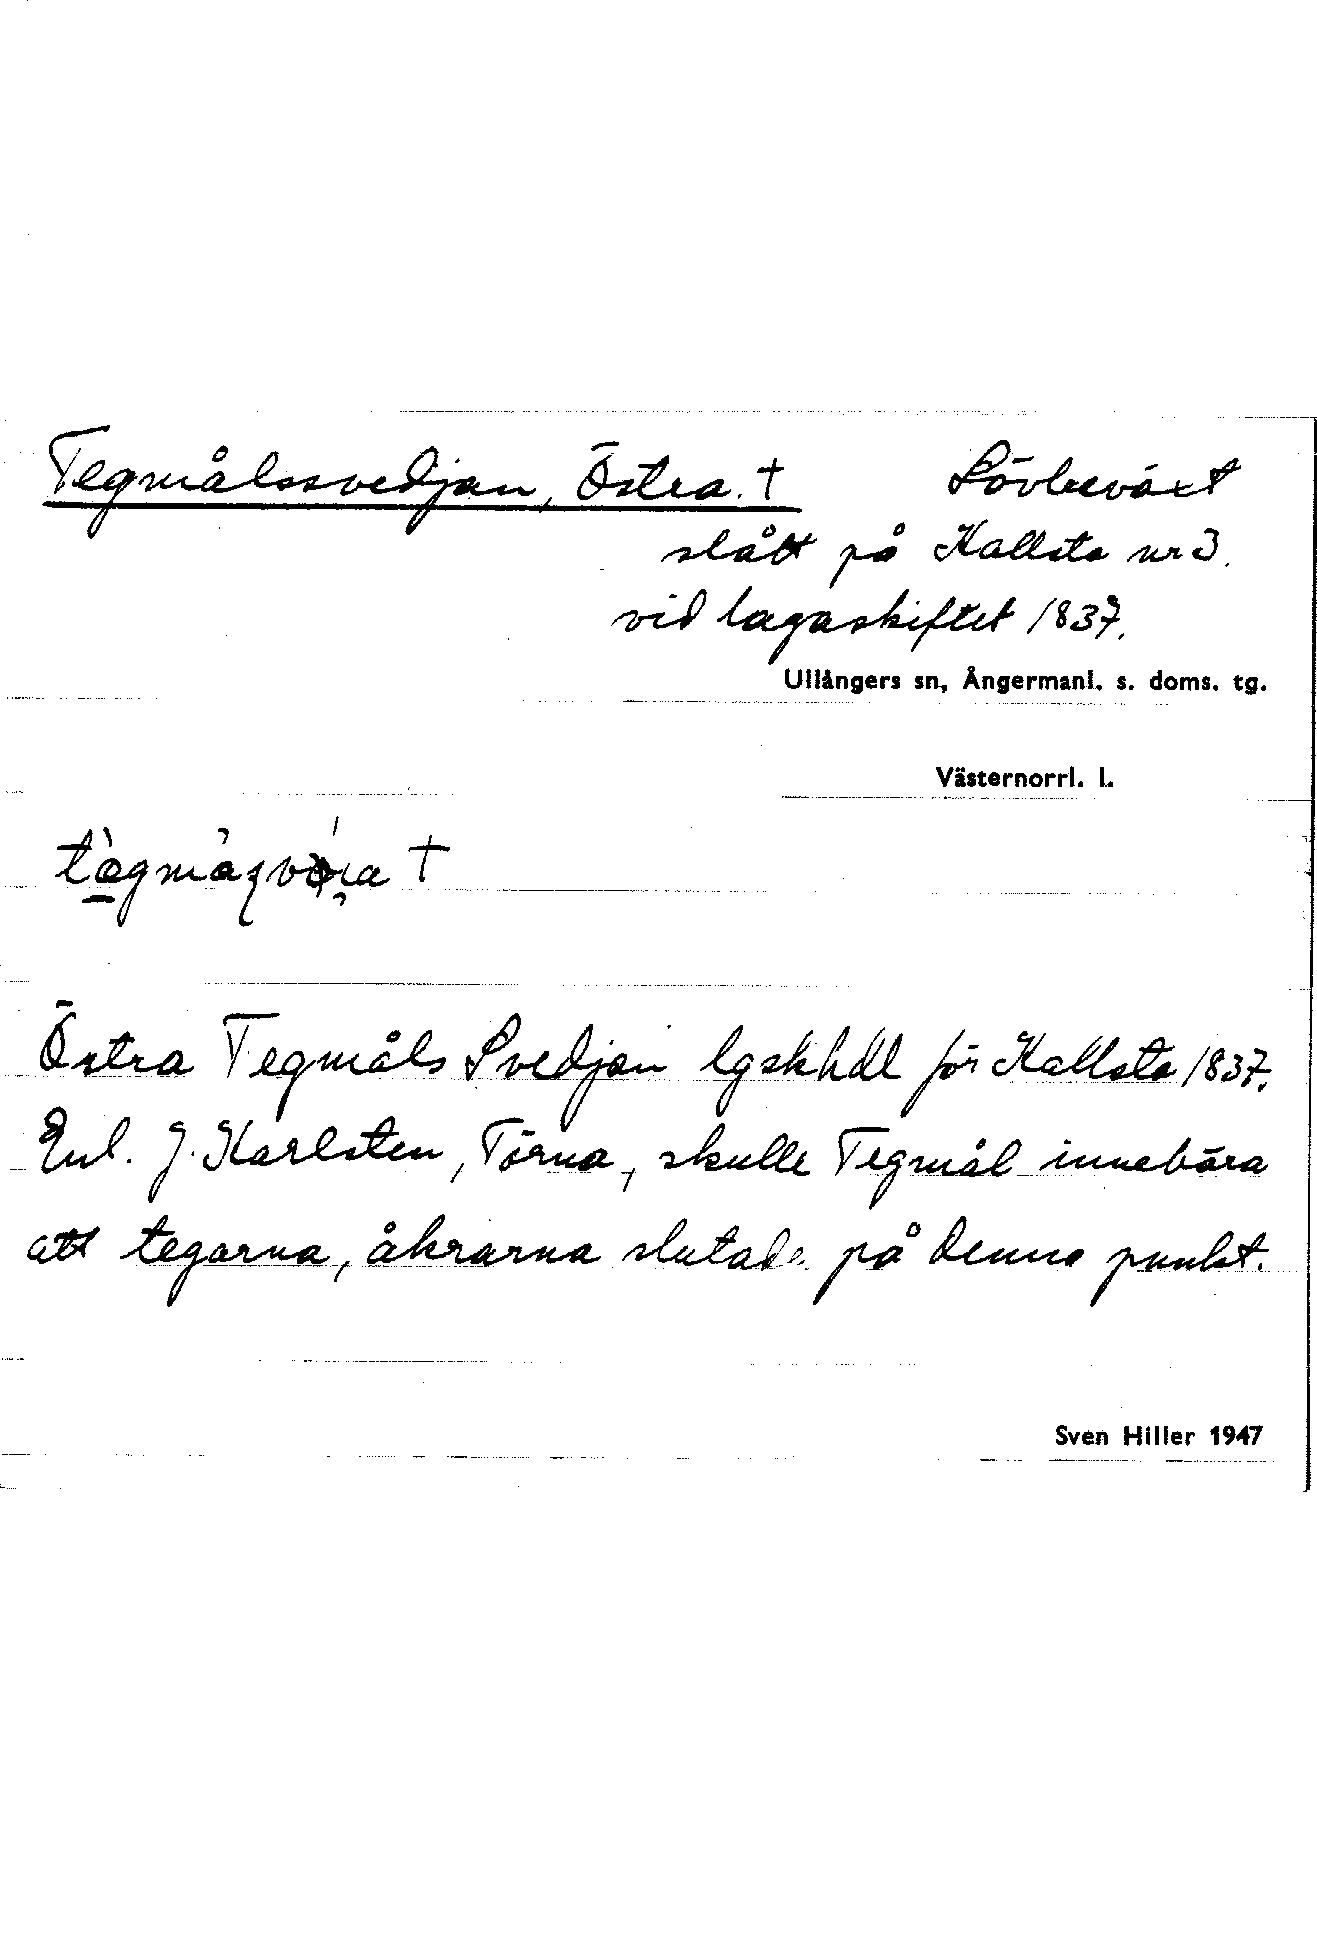 Tegmålssvedjan, Östra. † Lövbeväxt
slått på Kallsta nr 3.
vid lagaskiftet 1837.
Ullångers sn, Ångermanl. s. doms. tg.
Västernorrl. l.
†
Östra Tegmåls Svedjan lgskhdl för Kallsta 1837.
Enl. J. Karlsten, Törna, skulle Tegmål innebära
att tegarna, åkrarna slutade på denna punkt.
Sven Hiller 1947